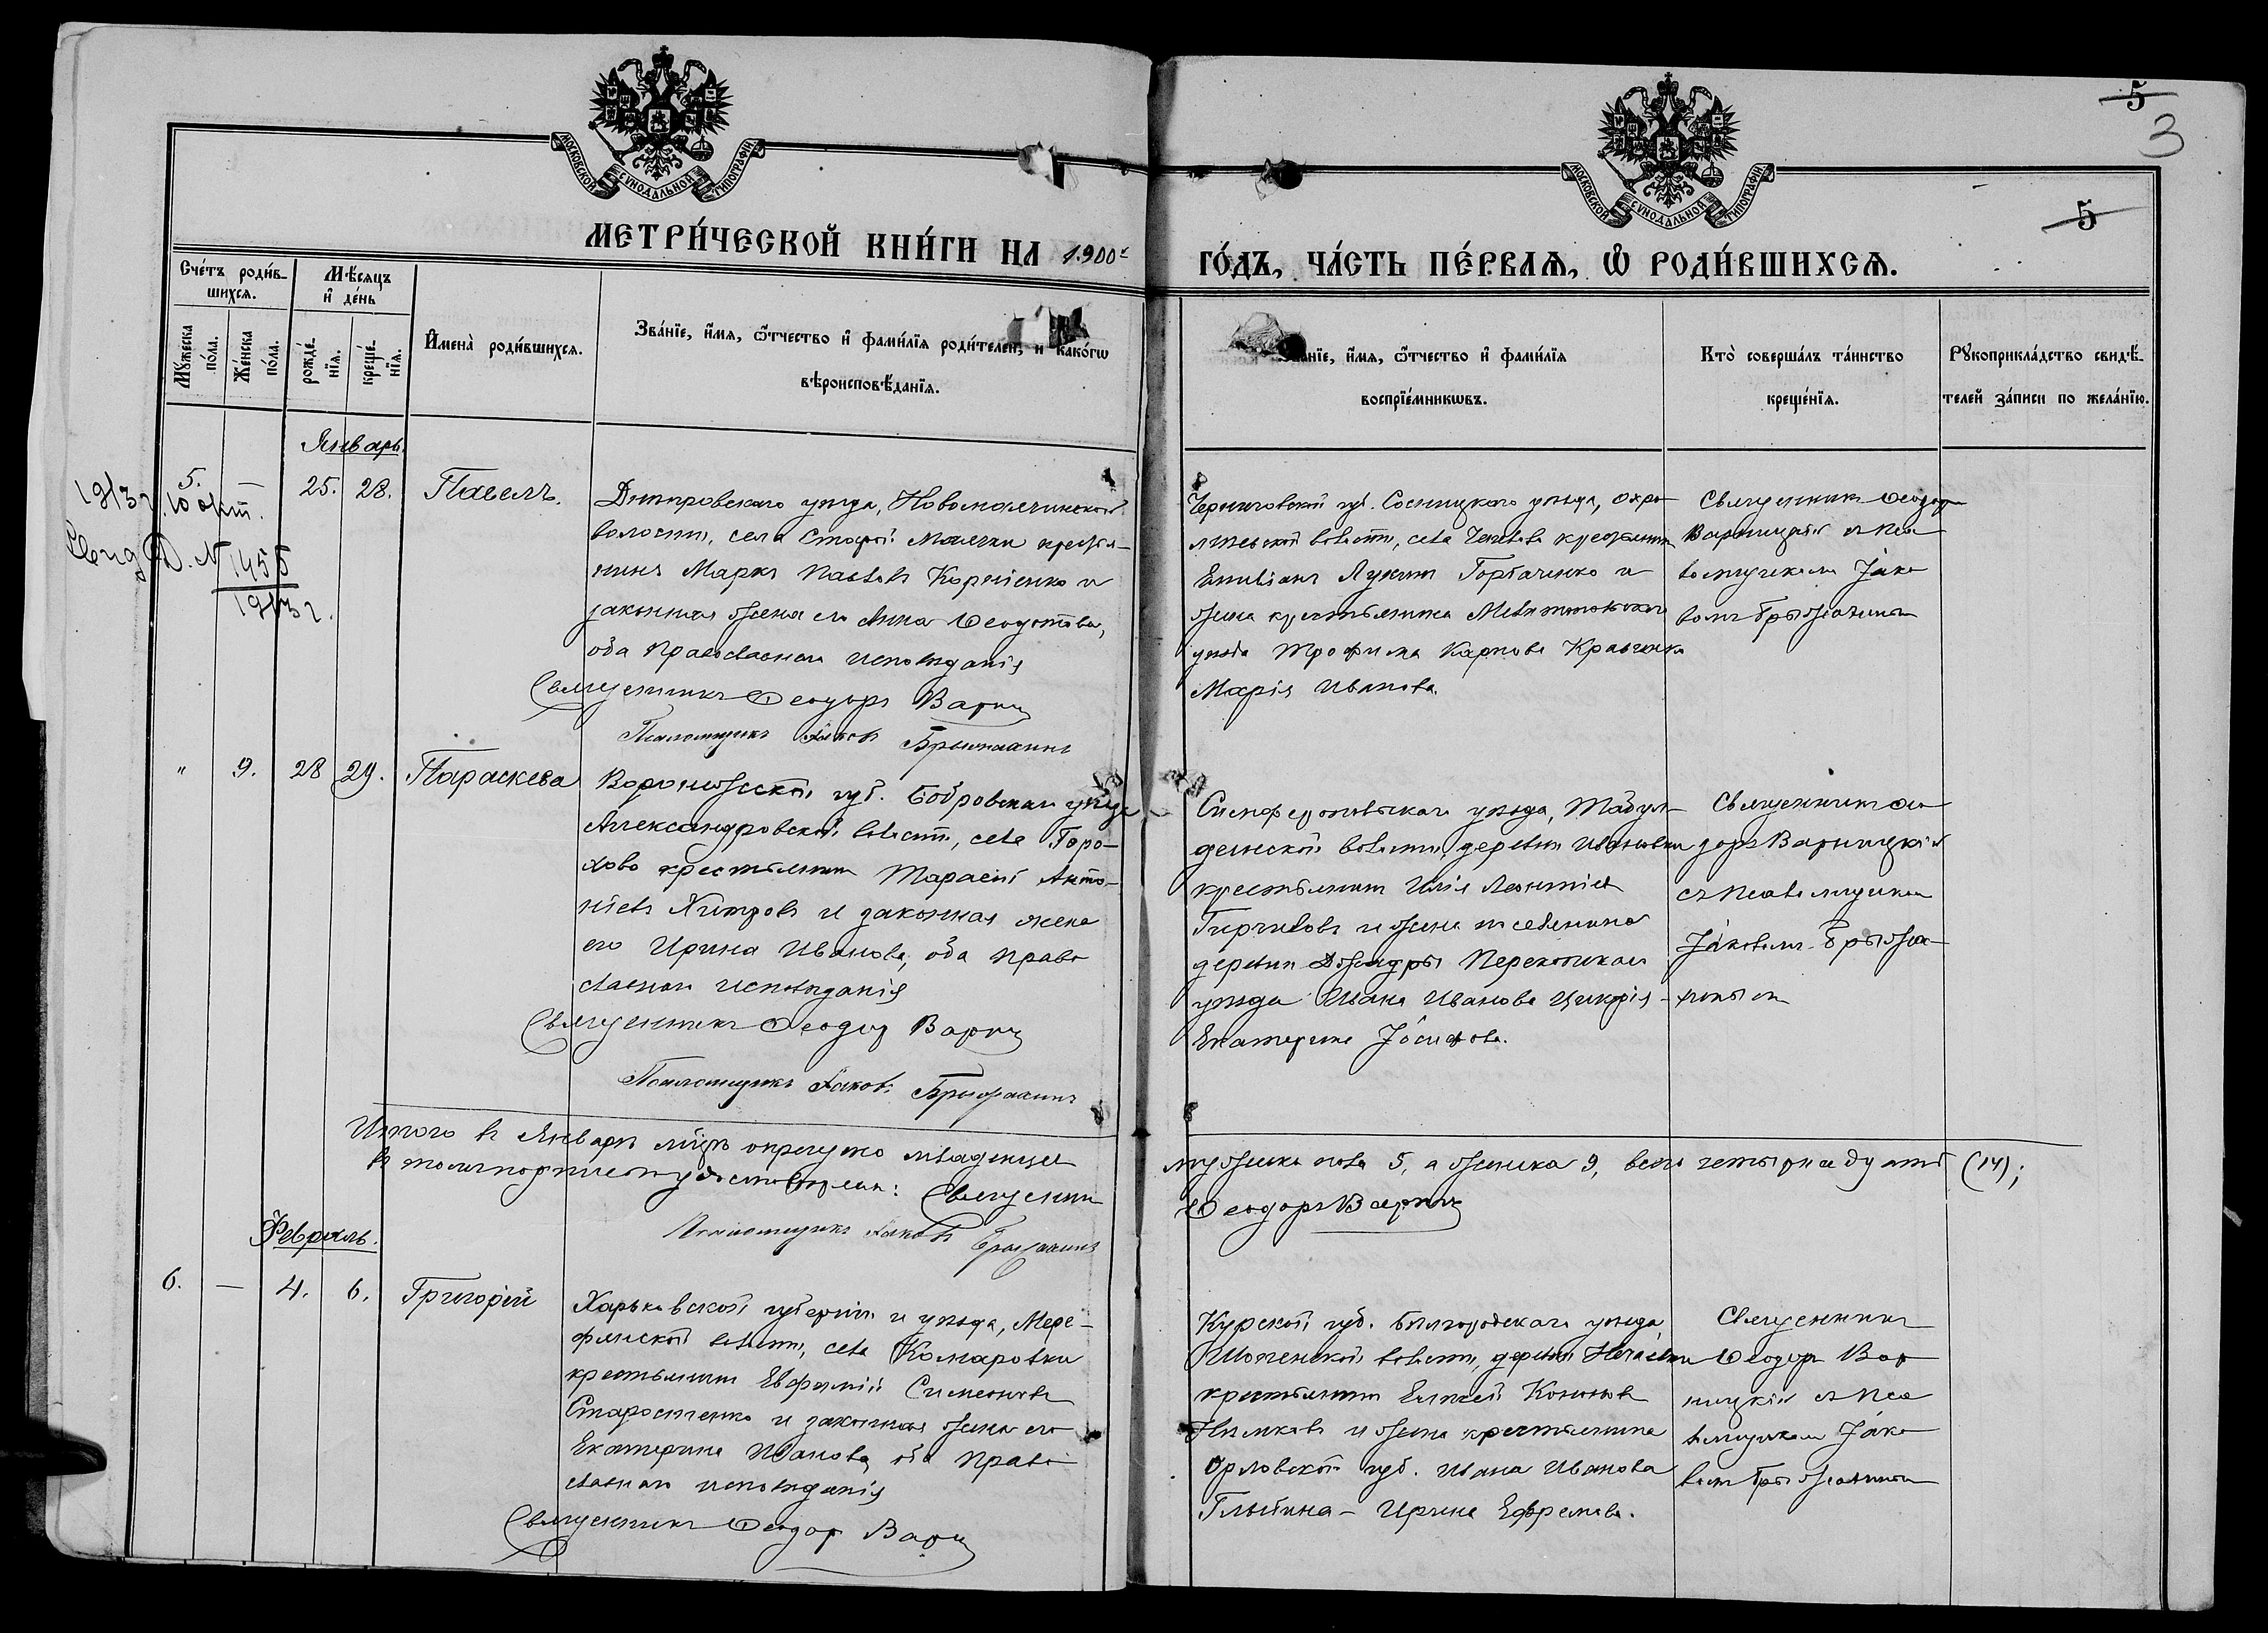 5
3
МОСКОВСКОЙ СѴНОДАЛЬНОЙ ТИПОГРАФІИ
МОСКОВСКОЙ СѴНОДАЛЬНОЙ ТИПОГРАФІИ
5
МЕТРИ́ЧЕСКОЙ КНИ́ГИ НА 1900г
ГО́ДЪ, ЧА́СТЬ ПЕ́РВАѦ, Ѡ҆ РОДИ́ВШИХСѦ.
Сче́тъ роди́в-
шихсѧ.
Мѣ́сѧцъ
и҆ де́нь
Мꙋ́жеска
по́ла.
Же́нска
по́ла.
рожде́-
нїѧ.
креще́-
нїѧ.
И҆мена̀ роди́вшихсѧ.
Зва́нїе, и҆́мѧ, ѻ҆́тчество и҆ фами́лїѧ роди́телей, и҆ како́гѡ
вѣроисповѣ́данїѧ.
Зва́нїе, и҆́мѧ, ѻ҆́тчество и҆ фами́лїѧ
воспрїе́мникѡвъ.
Кто̀ соверша́лъ та́инство
креще́нїѧ.
Рꙋкоприкла́дство свидѣ́-
телей за́писи по жела́нїю.
Январь.
5. — 25. 28. Павелъ.
1913 г. 10 окт.
Свид. № 1455
1913 г.
Днѣпровскаго уѣзда, Новомаячинской
волости, села Старой Маячки крестья-
нинъ Маркъ Павловъ Корніенко и
законная жена его Анна Ѳеодотова,
оба православнаго исповѣданія
Священникъ Ѳеодоръ Варниц
Псаломщикъ Іаковъ Брыжахинъ
Черниговской губ. Сосницкаго уѣзда, Охра-
міевской волости, села крестьянинъ
Емиліанъ Лукинъ Горбаченко и
жена крестьянина Мелитопольскаго
уѣзда Трофима Карпова Кравченко
Марія Иванова.
Священникъ Ѳеодоръ
Варницкій съ Пса
ломщикомъ Іако
вомъ Брыжахинымъ
" 9. 28 29. Параскева
Воронежской губ. Бобровскаго уѣзда
Александровской волости, села Горо-
хово крестьянинъ Тарасій Анто-
ніевъ Хитровъ и законная жена
его Ирина Иванова, оба право
славнаго исповѣданія
Священникъ Ѳеодор Варниц
Псаломщикъ Іаковъ Брыжахинъ
Симферопольскаго уѣзда, Табул-
динской волости, деревни Ивановки
крестьянинъ Илія Леонтіевъ
и жена поселянина
деревни Перекопскаго
уѣзда Ивана Иванова
Екатерина Іосифова.
Священникъ Ѳео
доръ Варницкій
съ Псаломщикомъ
Іаковомъ Брыжа-
хинымъ
Итого въ Январѣ мѣсяцѣ окрещено младенцевъ
мужеска пола 5, а женска 9, всего четырнадцать (14);
въ томъ подписомъ удостовѣряемъ: Священникъ
Ѳеодоръ Варниц
Псаломщикъ Іаковъ Брыжахинъ
Февраль.
6. — 4. 6. Григорій
Харьковской губерніи и уѣзда, Мере-
фянской волости, села Комаровки
крестьянинъ Евфимій Симеоновъ
Старостенко и законная жена его
Екатерина Иванова, оба право
славнаго исповѣданія
Священникъ Ѳеодор Варниц
Курской губ. Бѣлгородскаго уѣзда
Шопинской волости, деревни Нечаевки
крестьянинъ Елисей Кононовъ
и жена крестьянина
Орловской губ. Ивана Иванова
Ирина Ефремова.
Священникъ
Ѳеодоръ Вар
ницкій съ Пса
ломщикомъ Іако
вомъ Брыжахинымъ